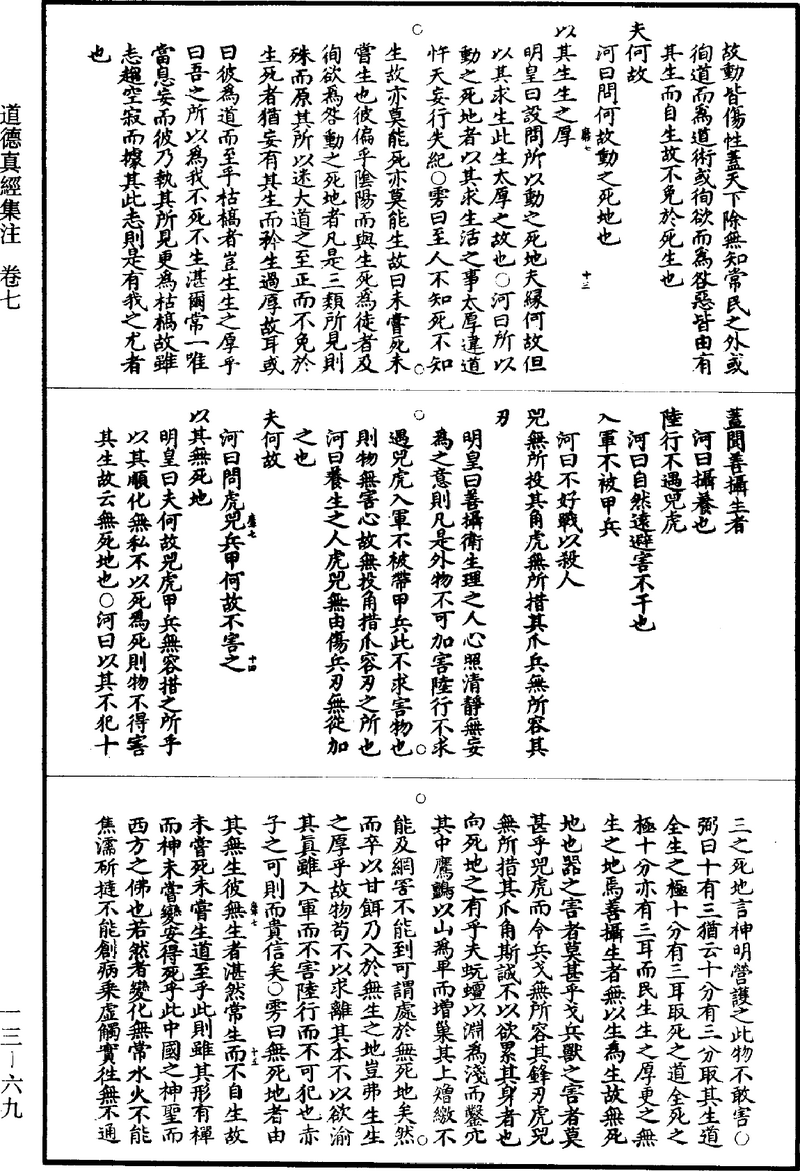 道德真經集注　卷七
一三—六九
故動皆傷性蓋天下除無知常民之外或
徇道而為道術或徇欲而為咎惡皆由有
其生而自生故不免於死生也
夫何故
河曰問何故動之死地也
以其生生之厚
明皇曰設問所以動之死地夫緣何故但
以其求生此生太厚之故也○河曰所以
動之死地者以其求生活之事太厚違道
忤天妄行失紀○雱曰至人不知死不知
生故亦莫能死亦莫能生故曰未嘗死未
嘗生也彼偏乎陰陽而與生死為徒者及
徇欲為咎動之死地者凡是三類所見則
殊而原其所以迷大道之至正而不免於
生死者猶妄有其生而矜生過厚故耳或
曰彼為道而至乎枯槁者豈生生之厚乎
曰吾之所以為我不死不生湛爾常一唯
當息妄而彼乃執其所見更為枯槁故雖
志趨空寂而據其此志則是有我之尤者
也
蓋聞善攝生者
河曰攝養也
陸行不遇兕虎
河曰自然遠避害不干也
入軍不被甲兵
河曰不好戰以殺人
兕無所投其角虎無所措其爪兵無所容其
刃
明皇曰善攝衛生理之人心照清靜無妄
為之意則凡是外物不可加害陸行不求
遇兕虎入軍不被帶甲兵此不求害物也
則物無害心故無投角措爪容刃之所也
河曰養生之人虎兕無由傷兵刃無從加
之也
夫何故
河曰問虎兕兵甲何故不害之
以其無死地
明皇曰夫何故兕虎甲兵無容措之所乎
以其順化無私不以死為死則物不得害
其生故云無死地也○河曰以其不犯十
三之死地言神明營護之此物不敢害○
弼曰十有三猶云十分有三分取其生道
全生之極十分有三耳取死之道全死之
極十分亦有三耳而民生生之厚更之無
生之地焉善攝生者無以生為生故無死
地也器之害者莫甚乎戈兵獸之害者莫
甚乎兕虎而令兵戈無所容其鋒刃虎兕
無所措其爪角斯誠不以欲累其身者也
向死地之有乎夫蚖蟺以淵為淺而鑿穴
其中鷹鸇以山為卑而增巢其上矰繳不
能及網罟不能到可謂處於無死地矣然
而卒以甘餌乃入於無生之地豈弗生生
之厚乎故物苟不以求離其本不以欲渝
其真雖入軍而不害陸行而不可犯也赤
子之可則而貴信矣○雱曰無死地者由
其無生彼無生者湛然常生而不自生故
未嘗死未嘗生道至乎此則雖其形有禪
而神未嘗變安得死乎此中國之神聖而
西方之佛也若然者變化無常水火不能
焦濡斫撻不能創病乘虛觸實徃無不通